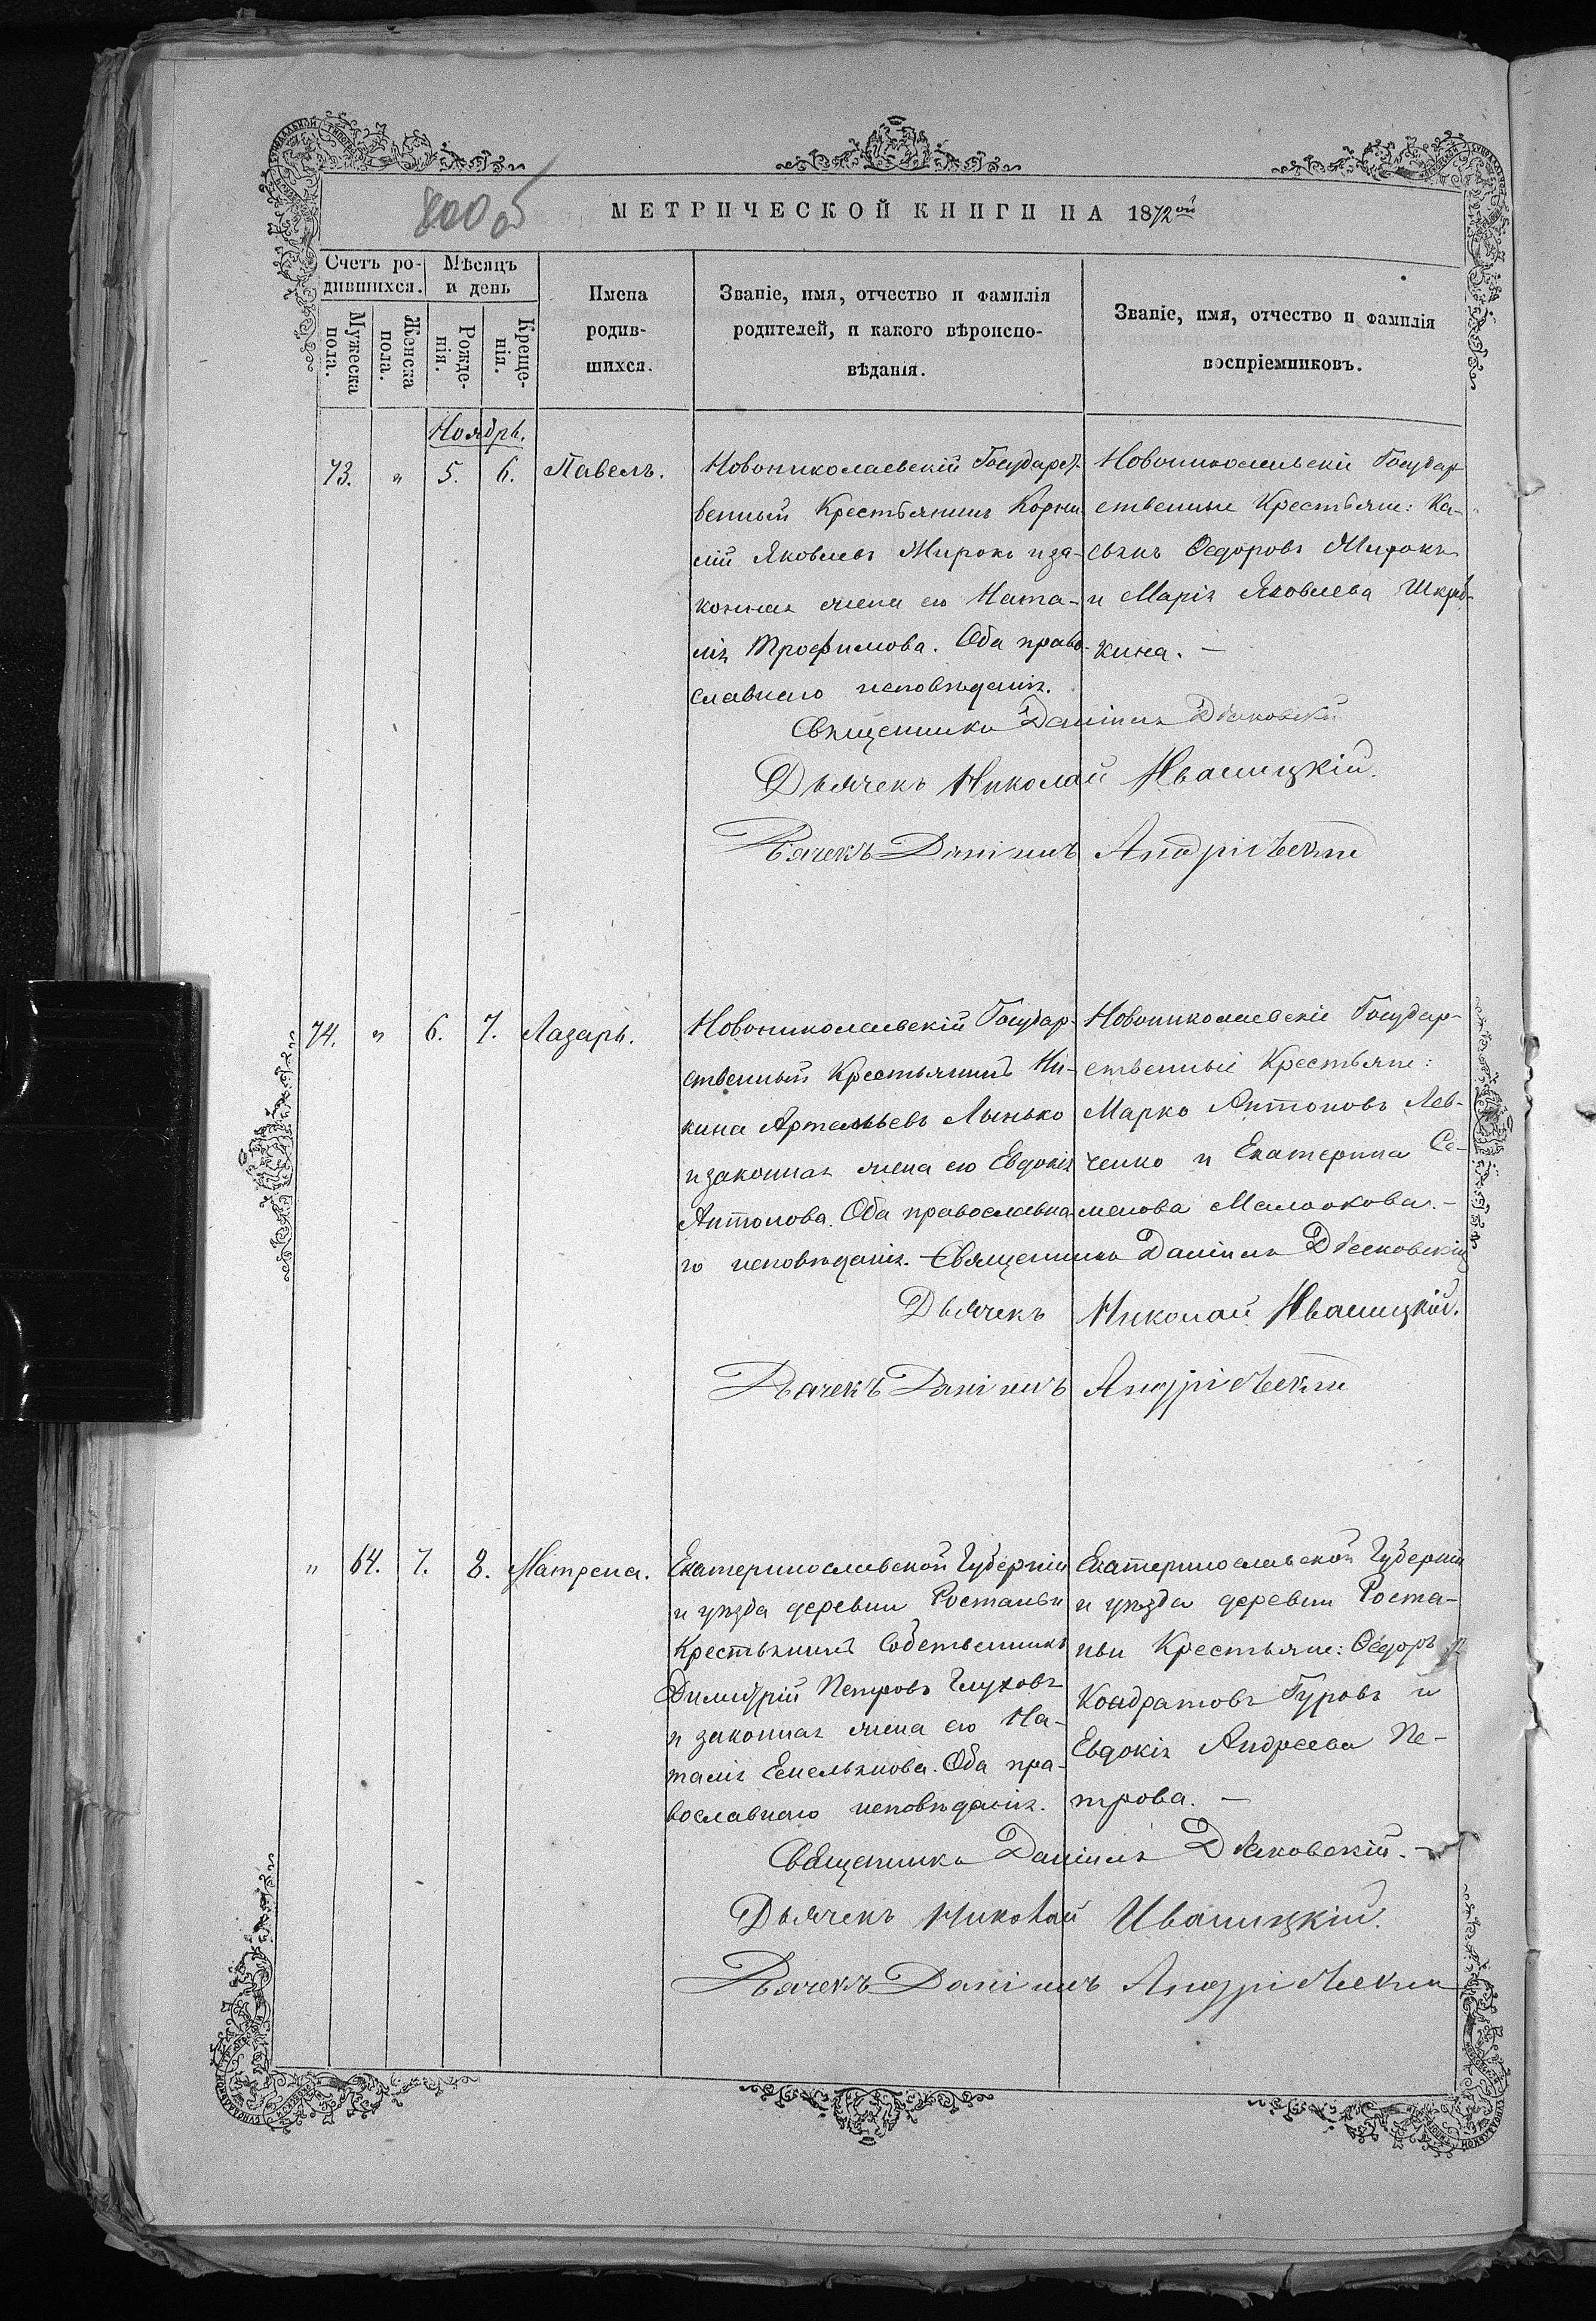 800 об
МЕТРИЧЕСКОЙ КНИГИ НА 1872ой
Счетъ ро-
дившихся.
Мѣсяцъ
и день
Мужеска
пола.
Женска
пола.
Рожде-
нія.
Креще-
нія.
Имена
родив-
шихся.
Званіе, имя, отчество и фамилія
родителей, и какого вѣроиспо-
вѣданія.
Званіе, имя, отчество и фамилія
воспріемниковъ.
Ноябрь.
73. " 5. 6. Павелъ.
Новониколаевскій Государст-
венный Крестьянинъ Корни-
лій Яковлевъ Мирокъ и за-
конная жена его Ната-
лія Трофимова. Оба право-
славнаго исповѣданія.
Новониколаевскіе Государ-
ственные Крестьяне: Ка-
сьянъ Ѳедоровъ Мирокъ
и Марія Яковлева
кина. —
Священникъ Даніилъ Дьяковскій
Дьячекъ Николай Иваницкій.
Дьячекъ Даніилъ Андріевскій
74. " 6. 7. Лазарь.
Новониколаевскій Государ-
ственный Крестьянинъ Ни-
кита Артемьевъ Лынько
и законная жена его Евдокія
Антонова. Оба православна-
го исповѣданія.
Новониколаевскіе Государ-
ственные Крестьяне:
Марко Антоновъ Лев-
ченко и Екатерина Се-
менова Малоокова. —
Священникъ Даніилъ Дьяковскій
Дьячекъ Николай Иваницкій.
Дьячекъ Даніилъ Андріевскій
" 64. 7. 8. Матрена.
Екатеринославской Губерніи
и уѣзда деревни Ростаньи
Крестьянинъ Собственникъ
Димитрій Петровъ Глуховъ
и законная жена его На-
талія Емельянова. Оба пра-
вославнаго исповѣданія.
Екатеринославской Губерніи
и уѣзда деревни Роста-
ньи Крестьяне: Ѳедоръ
Кондратовъ Гуровъ и
Евдокія Андреева Пе-
трова. —
Священникъ Даніилъ Дьяковскій. —
Дьячекъ Николай Иваницкій.
Дьячекъ Даніилъ Андріевскій